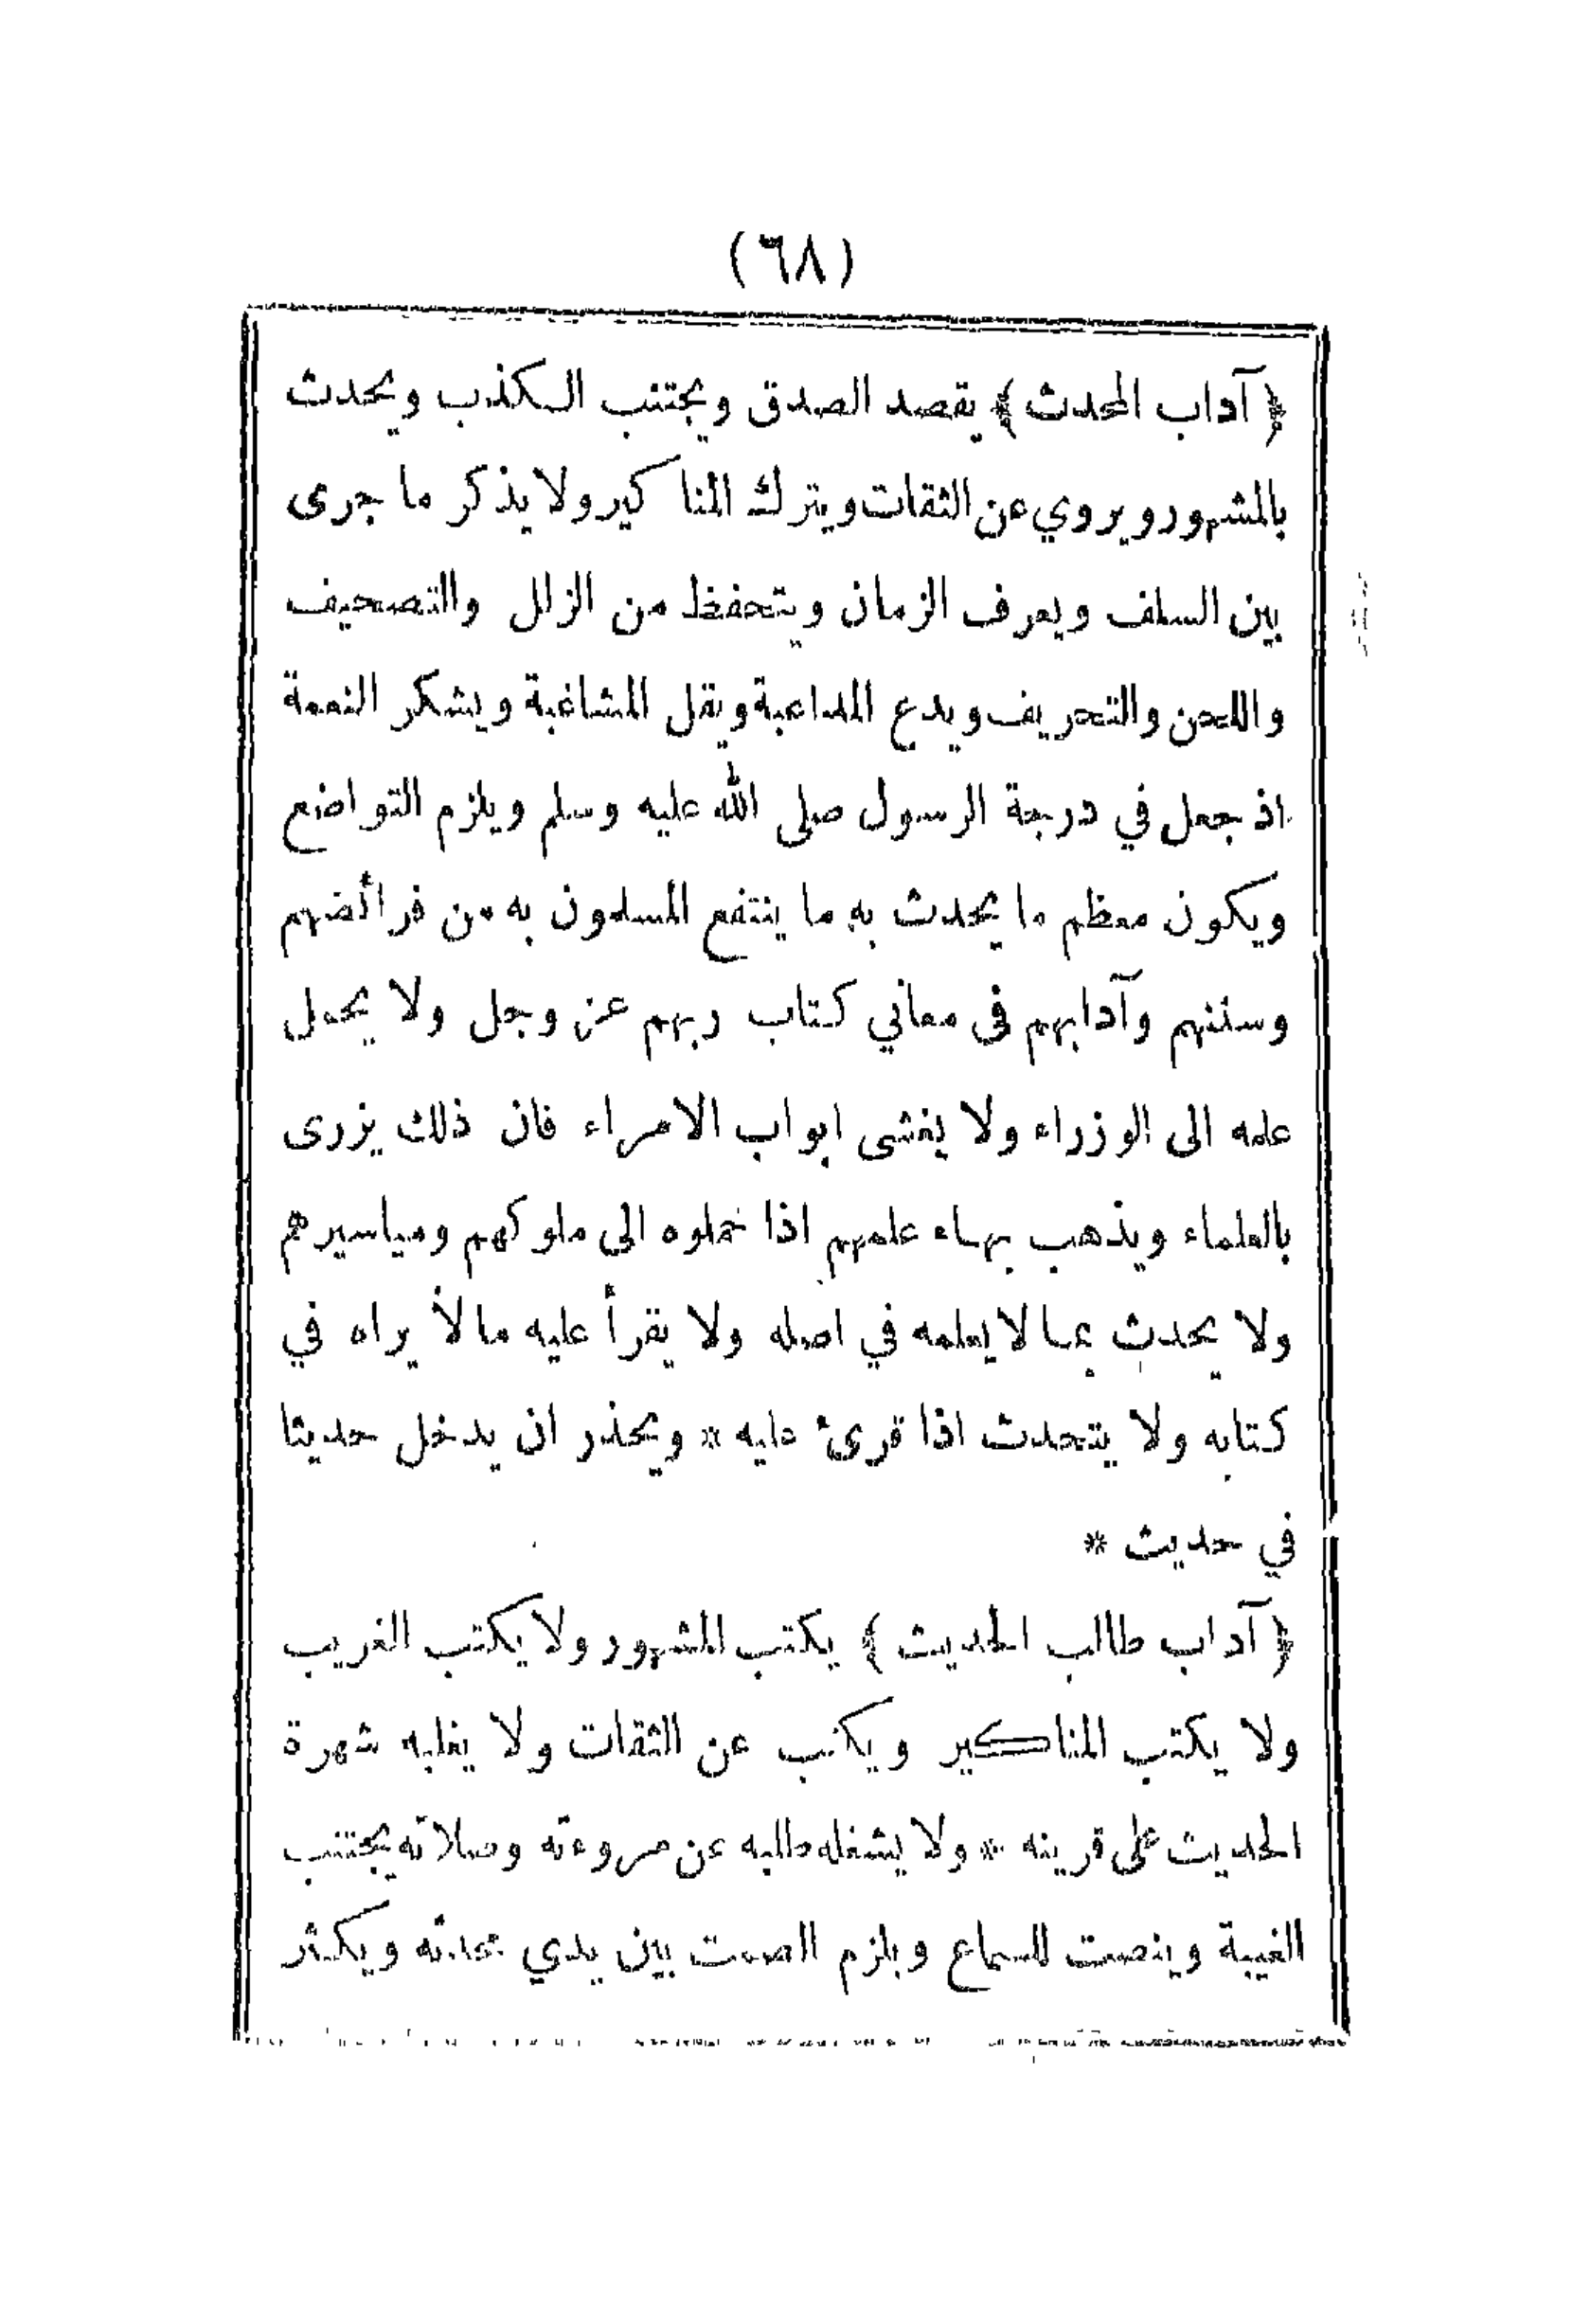 (٦٨)
﴿ آداب المحدث ﴾ يقصد الصدق ويجتنب الكذب ويحدث
بالمشهور ويروي عن الثقات ويترك المناكير ولا يذكر ما جرى
بين السلف ويعرف الزمان ويتحفظ من الزلل والتصحيف
واللحن والتحريف ويدع المداعبة ويقل المشاغبة ويشكر النعمة
اذ جعل في درجة الرسول صلى الله عليه وسلم ويلزم التواضع
ويكون معظم ما يحدث به ما ينتفع المسلمون به من فرائضهم
وسننهم وآدابهم فى معاني كتاب ربهم عز وجل ولا يحمل
علمه الى الوزراء ولا يغشى ابواب الامراء فان ذلك يزرى
بالعلماء ويذهب بهاء علمهم اذا حملوه الى ملوكهم ومياسيرهم
ولا يحدث بما لا يعلمه في اصله ولا يقرأ عليه ما لا يراه في
كتابه ولا يتحدث اذا قرئ عليه * ويحذر ان يدخل حديثا
في حديث *
﴿ آداب طالب الحديث ﴾ يكتب المشهور ولا يكتب الغريب
ولا يكتب المناكير ويكتب عن الثقات ولا يغلبه شهرة
الحديث على قرينه * ولا يشغله طلبه عن مروءته وصلاته يجتنب
الغيبة وينصت للسماع ويلزم الصمت بين يدي محدثه ويكثر